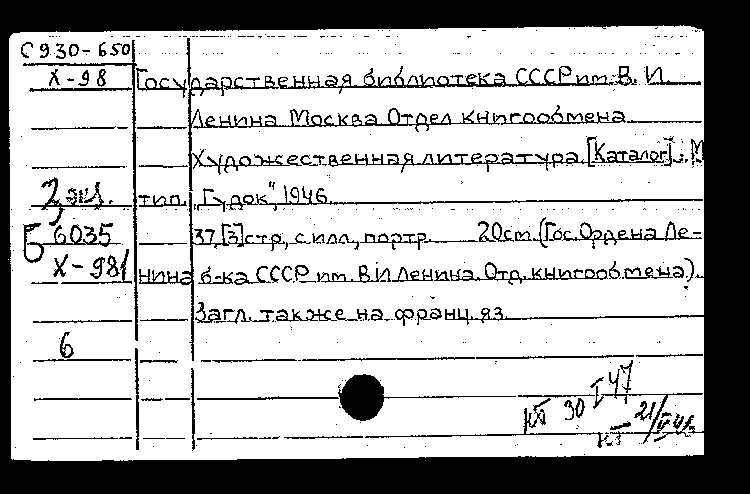 С930-650
Х-98 Государственная библиотека СССР им. В. И.
Ленина Москва Отдел книгообмена
Художественная литература. [Каталог]. М
2 экз. тип. „Гудок", 1946
Б 6035 37, [3] стр., с илл., портр. 20см. (Гос. Ордена Ле-
Х-981 нина б-ка СССР им. В. И Ленина. Отд. книгообмена).
Загл. также на франц. яз.
6
30 I 47
21/